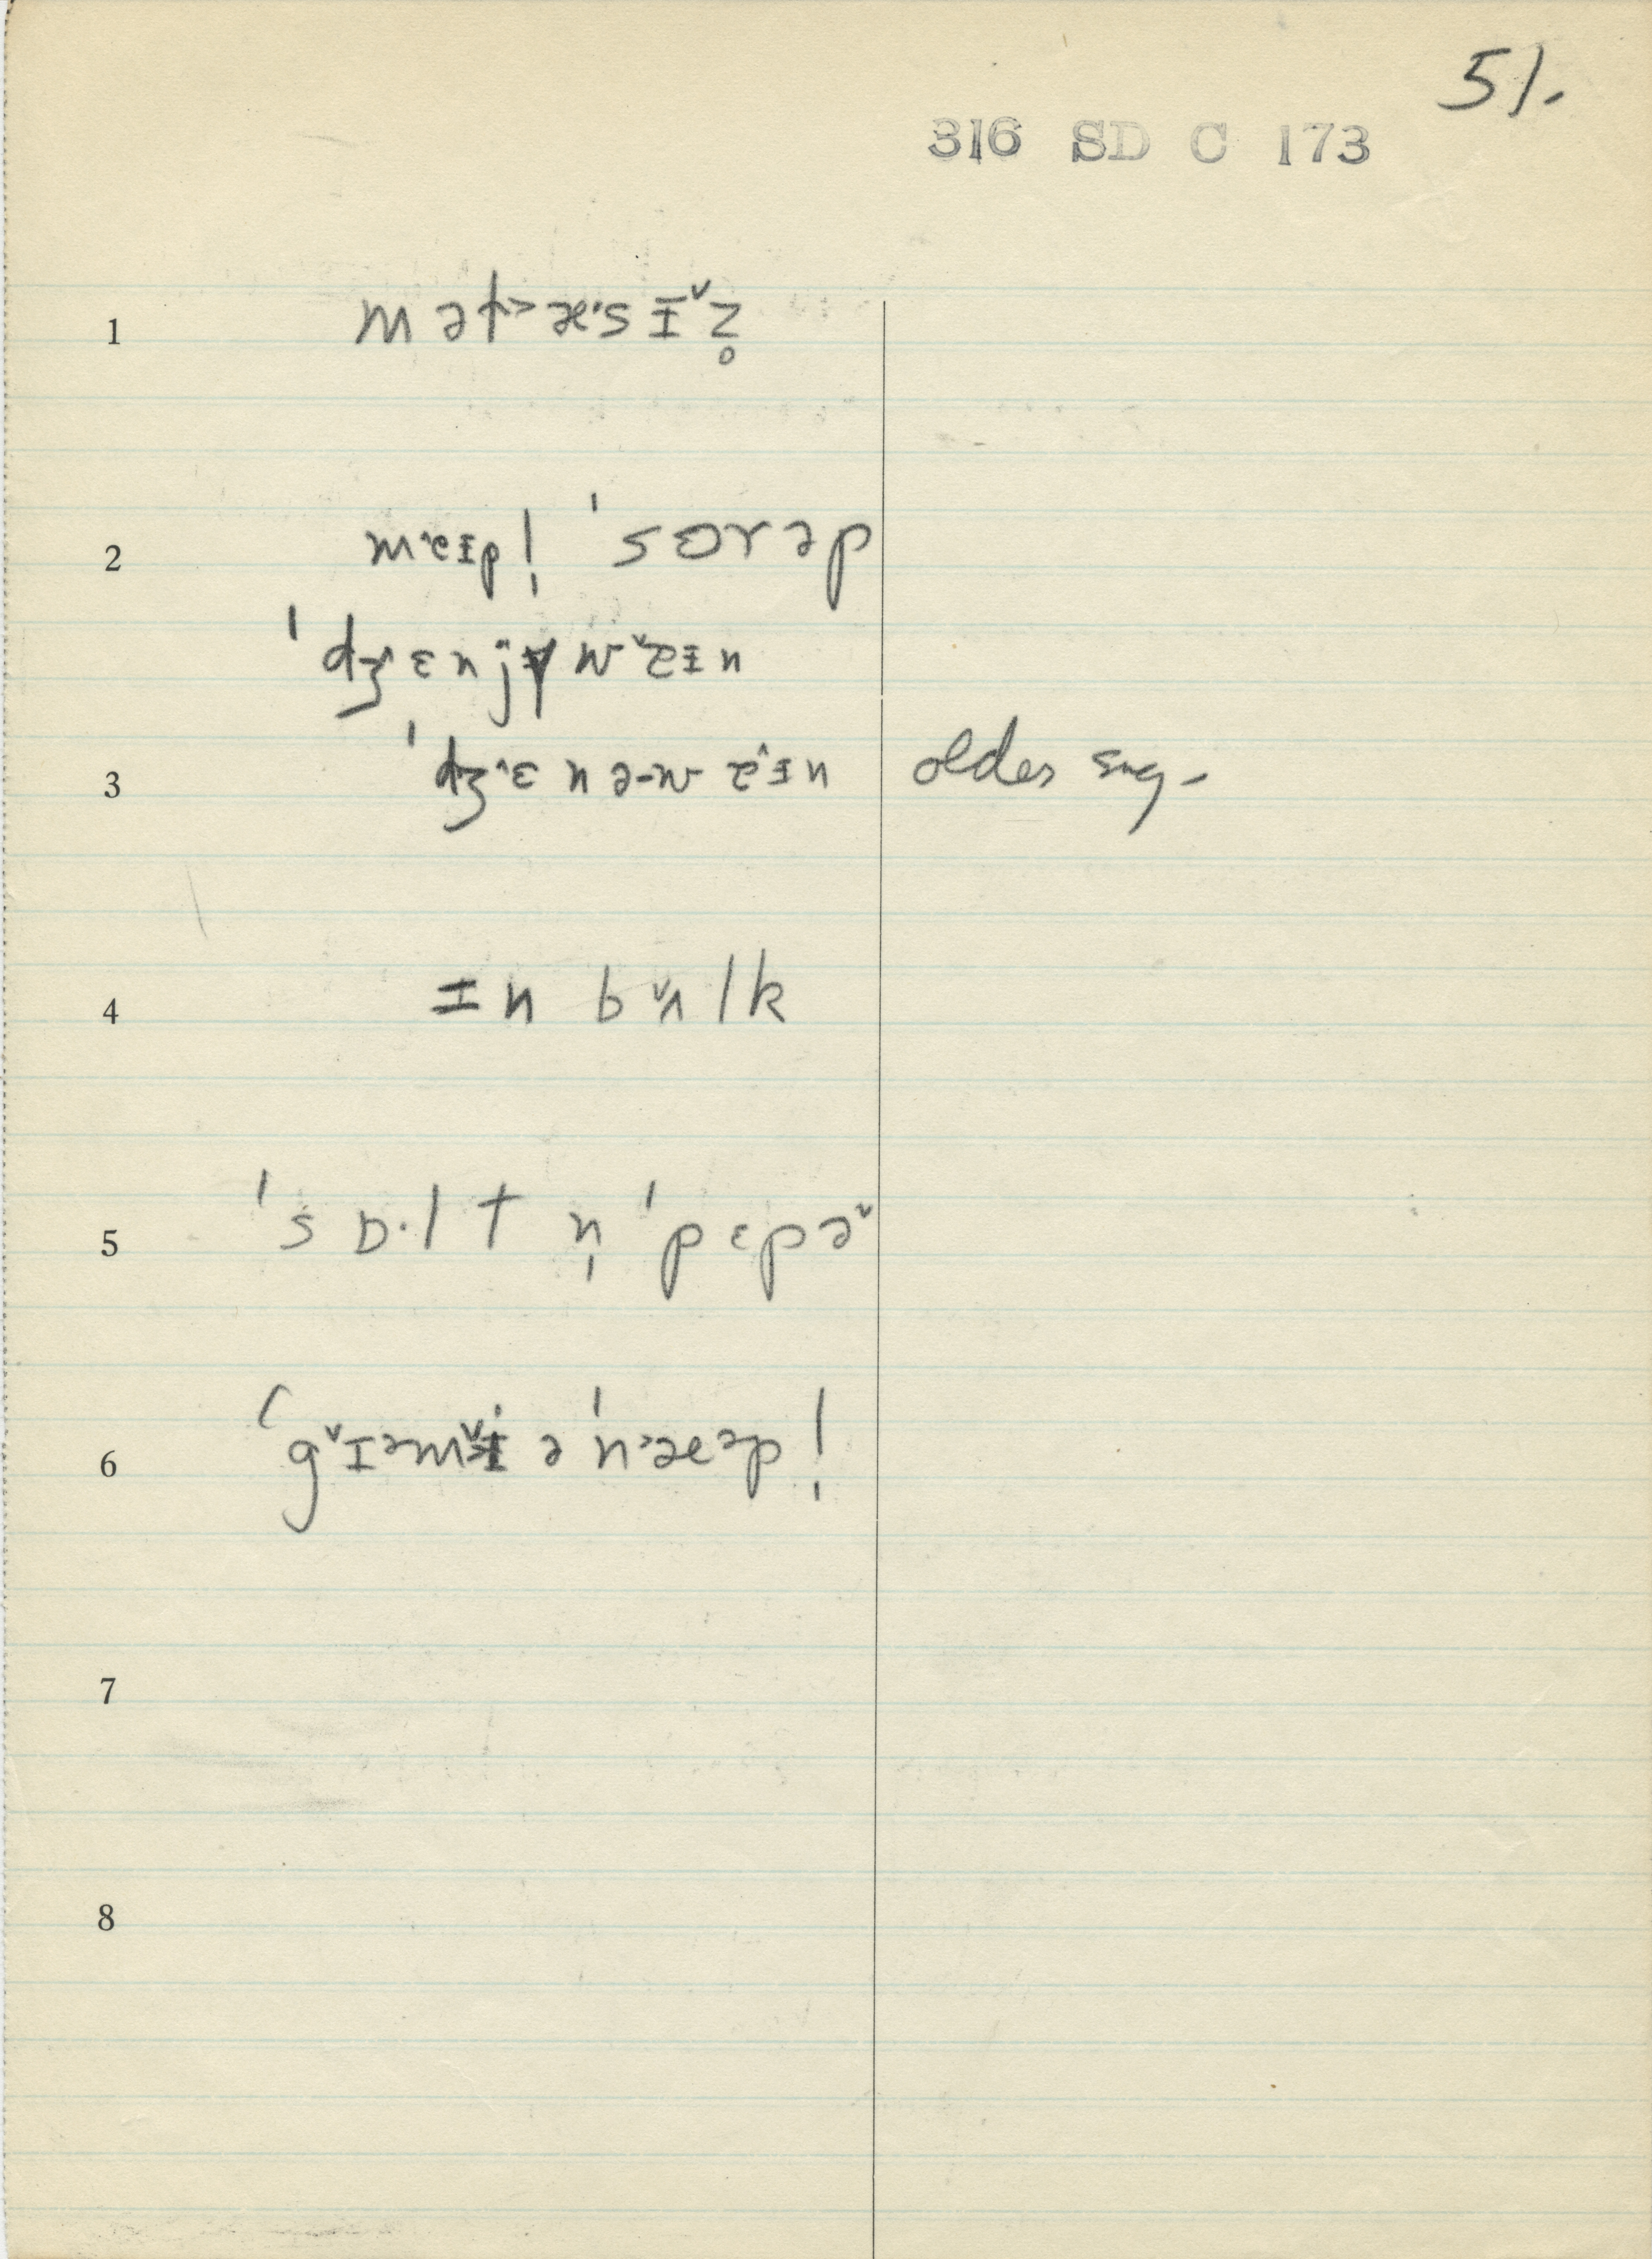 51.
316 SD C 173
1 mət˃æ·sɪ˅z̥
2 meɪp| ˈsɔrəp
ˈdʒ˄ɛnjɨw˅eɪn
3 ˈdʒ˄ɛnə-w-e˄ɪn older sug-
4 ɪn bʌ˅lk
5 ˈsɒ·lt n̩ ˈpɛpə˅
6 ˈg˅ɪəmɨ˅ ə ˈn˃æəp|
7
8